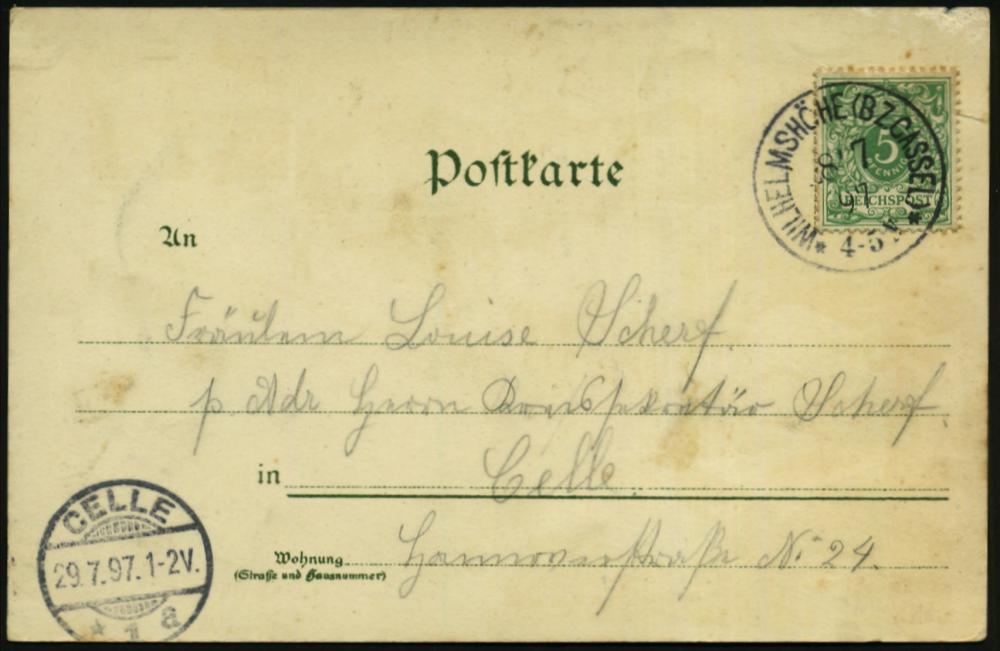 Postkarte
WILHELMSHÖHE (BZ CASSEL)
7
97
4-5
5
PFENNIG
REICHSPOST
An
Fräulein Louise Scherf.
p. Adr Herrn Kreissekretär Scherf.
in Celle.
Wohnung Hannoverstraße No 24.
(Straße und Hausnummer)
CELLE
29.7.97.1-2V.
* 1 a